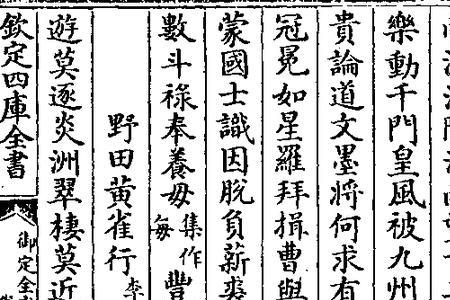 樂動千門皇風被九州
貴論道文墨將何求有
冠冕如星羅拜揖曹與
蒙國士識因脫負薪裘
數斗祿奉養母
集作
每
豐
野田黄雀行
李
遊莫逐炎洲翠棲莫近
欽定四庫全書
御定全